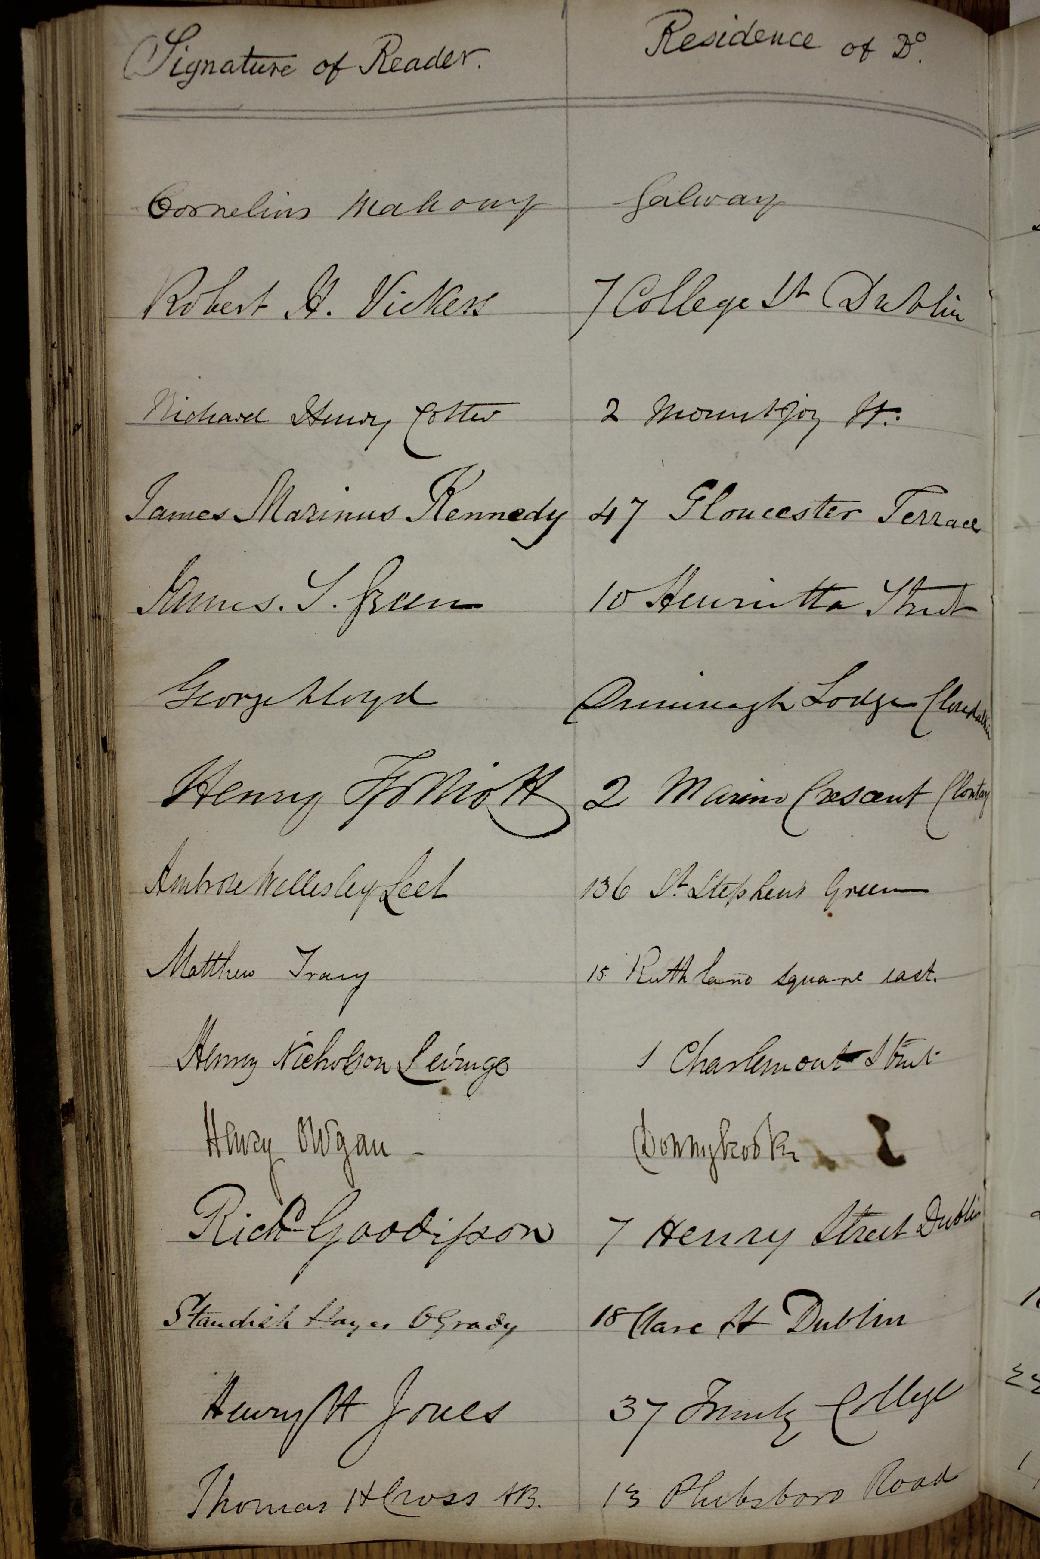 Signature of Reader. Residence of Do.
Cornelius Mahony Galway
Robert H. Vickers 7 College St Dublin
Richard Henry Cotter 2 Mountjoy St.
James Marinus Kennedy 47 Gloucester Terrace
James. S. Green 10 Henrietta Street
George Lloyd Lodge
Henry 2 Marino Crescent
Ambrose Wellesley Leet 136 St Stephens Green
Matthew Tracy 15 Ruthland square east.
Henry Nicholson Levinge 1 Charlemont Street
Henry Owgan - Donnybrook
Richd Goodisson 7 Henry Street Dublin
Standish Hayes OGrady 18 Clare St Dublin
Henry H Jones 37 Trinity College
Thomas H Cross AB. 13 Phibsboro Road